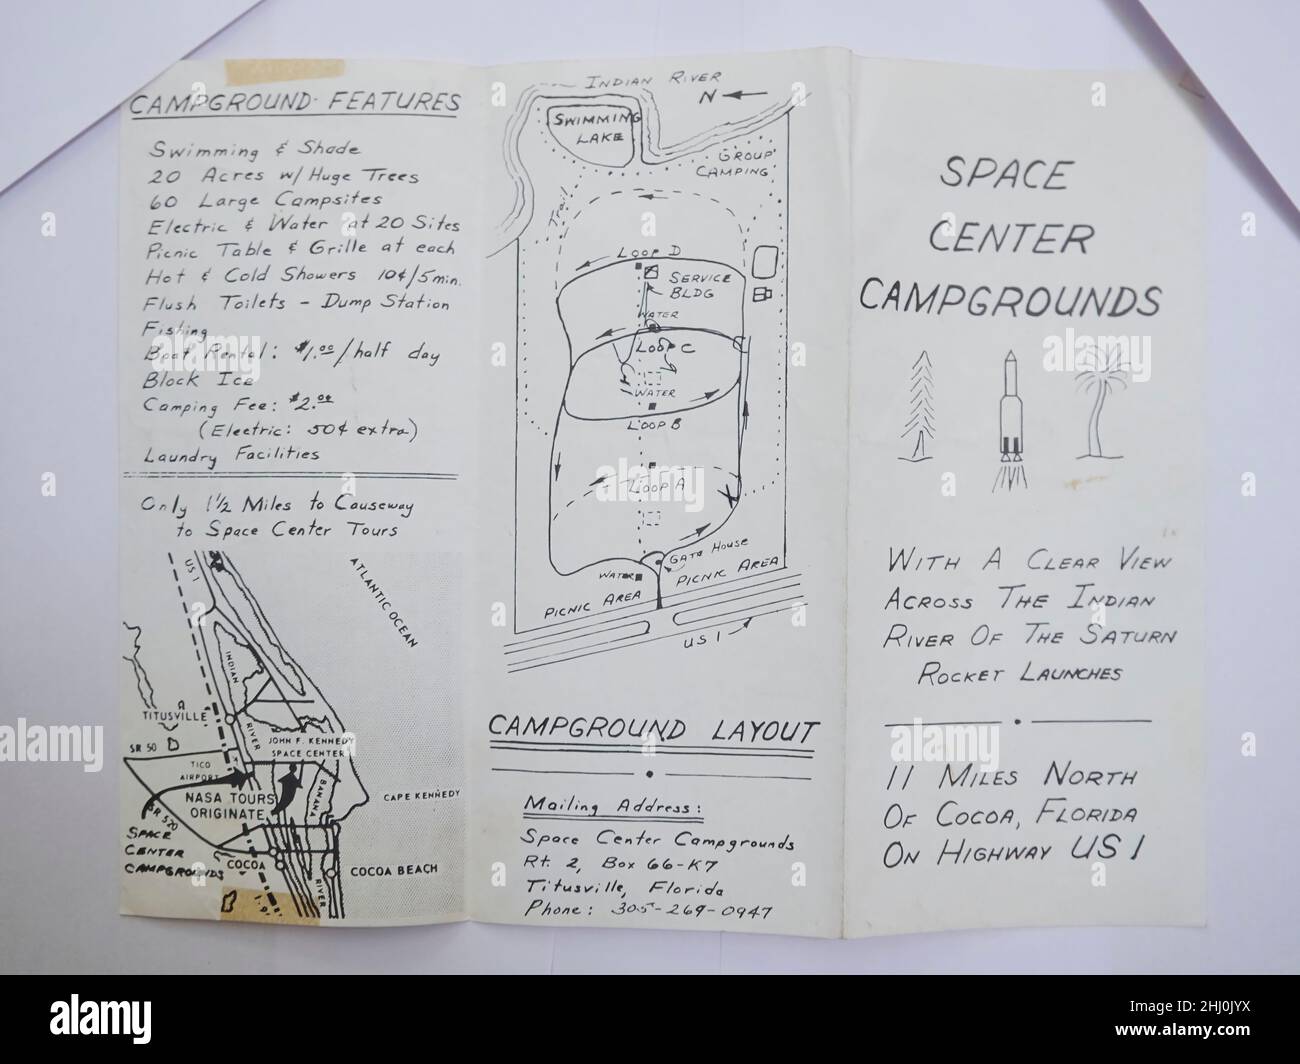 CAMPGROUND FEATURES
Swimming & Shade
20 Acres w/ Huge Trees
60 Large Campsites
Electric & Water at 20 Sites
Picnic Table & Grille at each
Hot & Cold Showers 10¢/5 min.
Flush Toilets - Dump Station
Fishing
Boat Rental: $1.00/half day
Block Ice
Camping Fee: $2.00
(Electric: 50¢ extra)
Laundry Facilities
Only 1½ Miles to Causeway
to Space Center Tours
US 1
ATLANTIC OCEAN
INDIAN
RIVER
TITUSVILLE
JOHN F. KENNEDY
SPACE CENTER
SR 50
TICO
AIRPORT
NASA TOURS
ORIGINATE
BANANA
RIVER
CAPE KENNEDY
SR 520
SPACE
CENTER
CAMPGROUNDS
COCOA
COCOA BEACH
INDIAN RIVER
N
SWIMMING
LAKE
GROUP
CAMPING
Trail
LOOP D
SERVICE
BLDG
WATER
LOOP C
WATER
LOOP B
LOOP A
GATE HOUSE
WATER
PICNIC AREA
PICNIC AREA
US 1
CAMPGROUND LAYOUT
Mailing Address:
Space Center Campgrounds
Rt. 2, Box 66-K7
Titusville, Florida
Phone: 305-269-0947
SPACE
CENTER
CAMPGROUNDS
WITH A CLEAR VIEW
ACROSS THE INDIAN
RIVER OF THE SATURN
ROCKET LAUNCHES
11 MILES NORTH
OF COCOA, FLORIDA
ON HIGHWAY US 1
alamy
alamy
Image ID: 2HJ0JYX
www.alamy.com